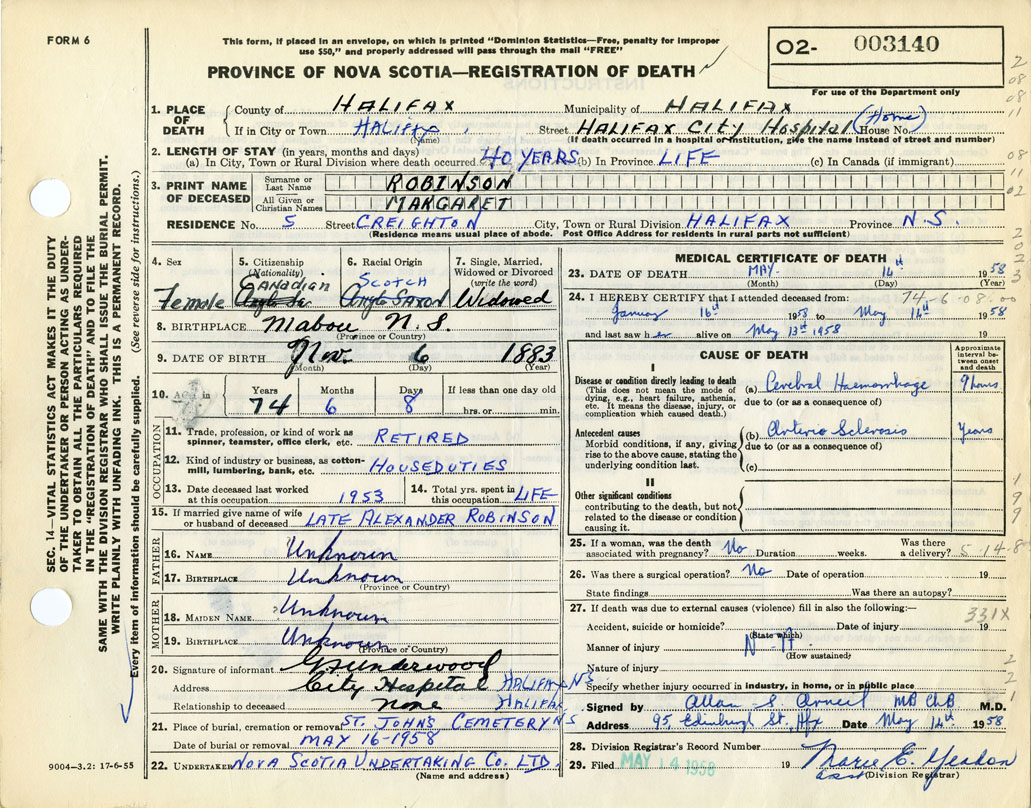 FORM 6
This form, if placed in an envelope, on which is printed "Dominion Statistics—Free, penalty for improper
use $50," and properly addressed will pass through the mail "FREE"
PROVINCE OF NOVA SCOTIA—REGISTRATION OF DEATH
02- 003140
For use of the Department only
SEC. 14—VITAL STATISTICS ACT MAKES IT THE DUTY
OF THE UNDERTAKER OR PERSON ACTING AS UNDER-
TAKER TO OBTAIN ALL THE PARTICULARS REQUIRED
IN THE "REGISTRATION OF DEATH" AND TO FILE THE
SAME WITH THE DIVISION REGISTRAR WHO SHALL ISSUE THE BURIAL PERMIT.
WRITE PLAINLY WITH UNFADING INK. THIS IS A PERMANENT RECORD.
Every item of information should be carefully supplied. (See reverse side for instructions.)
1. PLACE OF DEATH
County of HALIFAX Municipality of HALIFAX
If in City or Town HALIFAX Street HALIFAX CITY HOSPITAL (Home) House No.
(Name) (If death occurred in a hospital or institution, give the name instead of street and number)
2. LENGTH OF STAY (in years, months and days)
(a) In City, Town or Rural Division where death occurred 40 YEARS (b) In Province LIFE (c) In Canada (if immigrant)
3. PRINT NAME OF DECEASED
Surname or Last Name ROBINSON
All Given or Christian Names MARGARET
RESIDENCE No. 5 Street CREIGHTON City, Town or Rural Division HALIFAX Province N.S.
(Residence means usual place of abode. Post Office Address for residents in rural parts not sufficient)
4. Sex Female
5. Citizenship (Nationality) Canadian
6. Racial Origin Scotch Anglo Saxon
7. Single, Married, Widowed or Divorced (write the word) Widowed
8. BIRTHPLACE Mabou N.S.
(Province or Country)
9. DATE OF BIRTH Nov. 6 1883
(Month) (Day) (Year)
10. Aged in Years 74 Months 6 Days 8 If less than one day old hrs. or min.
OCCUPATION
11. Trade, profession, or kind of work as spinner, teamster, office clerk, etc. RETIRED
12. Kind of industry or business, as cotton-mill, lumbering, bank, etc. HOUSEDUTIES
13. Date deceased last worked at this occupation 1953
14. Total yrs. spent in this occupation LIFE
15. If married give name of wife or husband of deceased LATE ALEXANDER ROBINSON
FATHER
16. NAME Unknown
17. BIRTHPLACE Unknown
(Province or Country)
MOTHER
18. MAIDEN NAME Unknown
19. BIRTHPLACE Unknown
(Province or Country)
20. Signature of informant G Sunderwood
Address City Hospital HALIFAX NS
Relationship to deceased none HALIFAX
21. Place of burial, cremation or removal ST. JOHN'S CEMETERY NS
Date of burial or removal MAY 16-1958
22. UNDERTAKER NOVA SCOTIA UNDERTAKING CO. LTD.
(Name and address)
9004—3.2: 17-6-55
MEDICAL CERTIFICATE OF DEATH
23. DATE OF DEATH MAY 14th 1958
(Month) (Day) (Year)
24. I HEREBY CERTIFY that I attended deceased from: 74-6-08-00
January 16th 1958 to May 14th 1958
and last saw her alive on May 13th 1958 19
CAUSE OF DEATH
Approximate interval between onset and death
I
Disease or condition directly leading to death
(This does not mean the mode of
dying, e.g., heart failure, asthenia,
etc. It means the disease, injury, or
complication which caused death.)
(a) Cerebral Haemorrhage 9 hours
due to (or as a consequence of)
Antecedent causes
Morbid conditions, if any, giving
rise to the above cause, stating the
underlying condition last.
(b) Arterio Sclerosis Years
due to (or as a consequence of)
(c)
II
Other significant conditions
contributing to the death, but not
related to the disease or condition
causing it.
25. If a woman, was the death associated with pregnancy? No Duration weeks. Was there a delivery? 5-14-8
26. Was there a surgical operation? No Date of operation 19
State findings Was there an autopsy?
27. If death was due to external causes (violence) fill in also the following:—
331X
Accident, suicide or homicide? Date of injury 19
(State which)
Manner of injury
(How sustained)
Nature of injury
Specify whether injury occurred in industry, in home, or in public place
Signed by Allan S. MB ChB M.D.
Address 95 Edinburgh St. Hfx Date May 14th 1958
28. Division Registrar's Record Number
29. Filed MAY 14 1958 19 Marie E.
asst (Division Registrar)
2
08
08
11
08
11
02
2
0
2
3
1
9
9
2
2
1